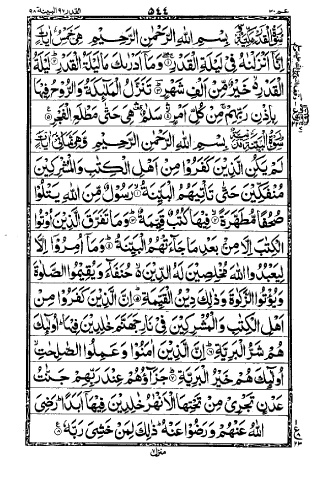 القدر ٩٧ البينة ٩٨ ٥٤٤ عم ٣٠
سورة القدر مكية بِسْمِ اللهِ الرَّحْمٰنِ الرَّحِيْمِ وهي خمس اية
اِنَّآ اَنْزَلْنٰهُ فِيْ لَيْلَةِ الْقَدْرِ ۚ وَمَآ اَدْرٰىكَ مَا لَيْلَةُ الْقَدْرِ ؕ لَيْلَةُ
الْقَدْرِ خَيْرٌ مِّنْ اَلْفِ شَهْرٍ ؕ تَنَزَّلُ الْمَلٰٓئِكَةُ وَالرُّوْحُ فِيْهَا
بِاِذْنِ رَبِّهِمْ مِّنْ كُلِّ اَمْرٍ ۙ سَلٰمٌ ۛ هِيَ حَتّٰى مَطْلَعِ الْفَجْرِ
بِسْمِ اللهِ الرَّحْمٰنِ الرَّحِيْمِ
لَمْ يَكُنِ الَّذِيْنَ كَفَرُوْا مِنْ اَهْلِ الْكِتٰبِ وَالْمُشْرِكِيْنَ
مُنْفَكِّيْنَ حَتّٰى تَاْتِيَهُمُ الْبَيِّنَةُ ۙ رَسُوْلٌ مِّنَ اللهِ يَتْلُوْا
صُحُفًا مُّطَهَّرَةً ۙ فِيْهَا كُتُبٌ قَيِّمَةٌ ؕ وَمَا تَفَرَّقَ الَّذِيْنَ اُوْتُوا
الْكِتٰبَ اِلَّا مِنْۢ بَعْدِ مَا جَآءَتْهُمُ الْبَيِّنَةُ ؕ وَمَآ اُمِرُوْٓا اِلَّا
لِيَعْبُدُوا اللهَ مُخْلِصِيْنَ لَهُ الدِّيْنَ ۙ حُنَفَآءَ وَيُقِيْمُوا الصَّلٰوةَ
وَيُؤْتُوا الزَّكٰوةَ وَذٰلِكَ دِيْنُ الْقَيِّمَةِ ؕ اِنَّ الَّذِيْنَ كَفَرُوْا مِنْ
اَهْلِ الْكِتٰبِ وَالْمُشْرِكِيْنَ فِيْ نَارِ جَهَنَّمَ خٰلِدِيْنَ فِيْهَا ؕ اُولٰٓئِكَ
هُمْ شَرُّ الْبَرِيَّةِ ؕ اِنَّ الَّذِيْنَ اٰمَنُوْا وَعَمِلُوا الصّٰلِحٰتِ ۙ
اُولٰٓئِكَ هُمْ خَيْرُ الْبَرِيَّةِ ؕ جَزَآؤُهُمْ عِنْدَ رَبِّهِمْ جَنّٰتُ
عَدْنٍ تَجْرِيْ مِنْ تَحْتِهَا الْاَنْهٰرُ خٰلِدِيْنَ فِيْهَآ اَبَدًا ؕ رَضِيَ
اللهُ عَنْهُمْ وَرَضُوْا عَنْهُ ؕ ذٰلِكَ لِمَنْ خَشِيَ رَبَّهٗ
منزل